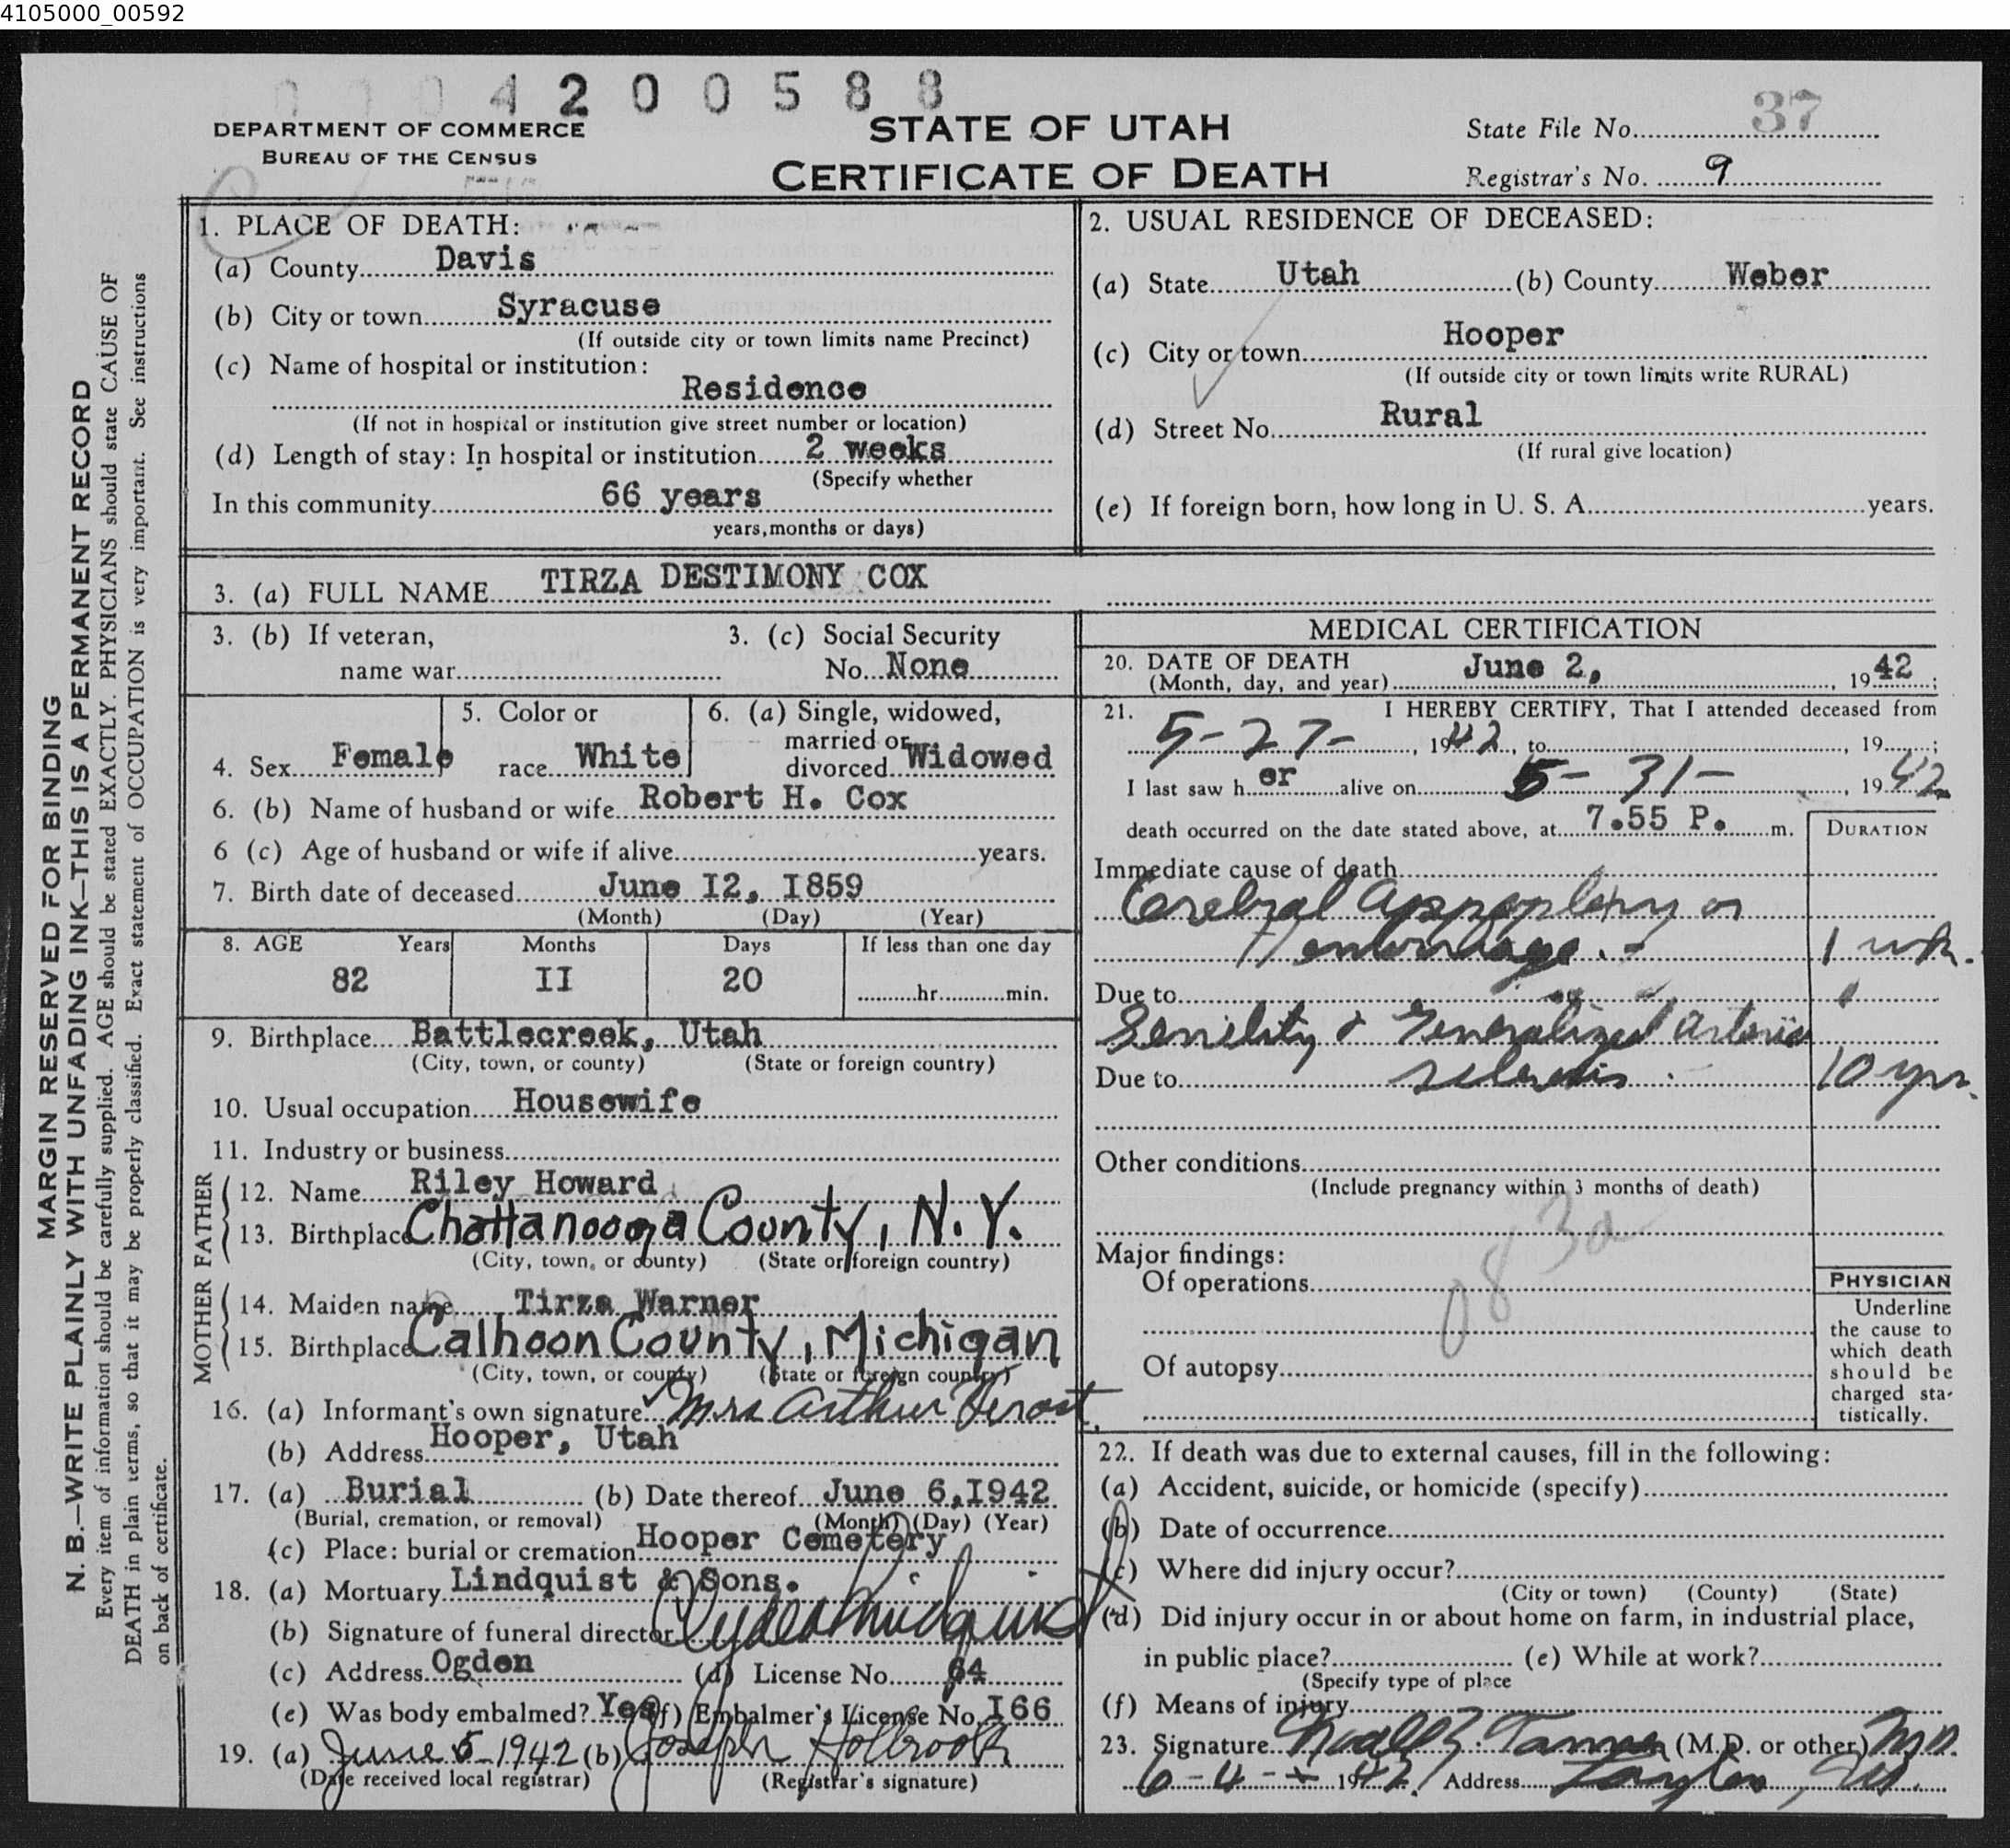 4105000_00592
4 2 0 0 5 8 8
DEPARTMENT OF COMMERCE
BUREAU OF THE CENSUS
STATE OF UTAH
CERTIFICATE OF DEATH
State File No. 37
Registrar's No. 9
MARGIN RESERVED FOR BINDING
N. B.—WRITE PLAINLY WITH UNFADING INK—THIS IS A PERMANENT RECORD
Every item of information should be carefully supplied. AGE should be stated EXACTLY. PHYSICIANS should state CAUSE OF
DEATH in plain terms, so that it may be properly classified. Exact statement of OCCUPATION is very important. See instructions
on back of certificate.
1. PLACE OF DEATH:
(a) County Davis
(b) City or town Syracuse
(If outside city or town limits name Precinct)
(c) Name of hospital or institution:
Residence
(If not in hospital or institution give street number or location)
(d) Length of stay: In hospital or institution 2 weeks
(Specify whether
In this community 66 years
years, months or days)
2. USUAL RESIDENCE OF DECEASED:
(a) State Utah (b) County Weber
(c) City or town Hooper
(If outside city or town limits write RURAL)
(d) Street No. Rural
(If rural give location)
(e) If foreign born, how long in U. S. A. years.
3. (a) FULL NAME TIRZA DESTIMONY COX
3. (b) If veteran,
name war
3. (c) Social Security
No. None
4. Sex Female
5. Color or
race White
6. (a) Single, widowed,
married or
divorced Widowed
6. (b) Name of husband or wife Robert H. Cox
6 (c) Age of husband or wife if alive years.
7. Birth date of deceased June I2, I859
(Month) (Day) (Year)
8. AGE Years Months Days If less than one day
82 II 20 hr. min.
9. Birthplace Battlecreek, Utah
(City, town, or county) (State or foreign country)
10. Usual occupation Housewife
11. Industry or business
FATHER
12. Name Riley Howard
13. Birthplace Chattanooga County, N.Y.
(City, town, or county) (State or foreign country)
MOTHER
14. Maiden name Tirza Warner
15. Birthplace Calhoon County, Michigan
(City, town, or county) (State or foreign country)
16. (a) Informant's own signature Mrs Arthur
(b) Address Hooper, Utah
17. (a) Burial (b) Date thereof June 6, I942
(Burial, cremation, or removal) (Month) (Day) (Year)
(c) Place: burial or cremation Hooper Cemetery
18. (a) Mortuary Lindquist & Sons.
(b) Signature of funeral director
(c) Address Ogden (d) License No. 64
(e) Was body embalmed? Yes (f) Embalmer's License No. I66
19. (a) June 5-1942 (b) Joseph Holbrook
(Date received local registrar) (Registrar's signature)
MEDICAL CERTIFICATION
20. DATE OF DEATH
(Month, day, and year) June 2, 1942;
21. I HEREBY CERTIFY, That I attended deceased from
5-27-, 1942, to , 19 ;
I last saw her alive on 5-31-, 1942
death occurred on the date stated above, at 7.55 P. m.
DURATION
Immediate cause of death
Cerebral Appoplexy or
Hemorrhage. 1 wk.
Due to
Senility & Generalized Arterio
Due to sclerosis. 10 yrs.
Other conditions
(Include pregnancy within 3 months of death)
083a
Major findings:
Of operations
Of autopsy
PHYSICIAN
Underline
the cause to
which death
should be
charged sta-
tistically.
22. If death was due to external causes, fill in the following:
(a) Accident, suicide, or homicide (specify)
(b) Date of occurrence
(c) Where did injury occur?
(City or town) (County) (State)
(d) Did injury occur in or about home on farm, in industrial place,
in public place? (e) While at work?
(Specify type of place
(f) Means of injury
23. Signature Noall Z. Tanner (M.D. or other) M.D.
6-4- 1942 Address Layton,